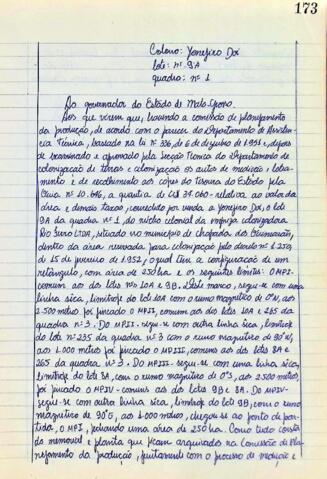 173
Colono: Yonejiro Doi
lote: nº 9A
quadra: nº 1
Ao governador do Estado de Mato-Grosso.
Aos que virem que, havendo a comissão de planejamento
da produção, de acordo com o parecer do Departamento de Assistên
cia Técnica, baseado na lei nº 336, de 6 de dezembro de 1.951 e, depois
de examinado e aprovado pela Secção Técnica do Departamento de
colonização de terras e colonização os autos de medição e lotea-
mento e de recolhimento aos cofres do tesouro do Estado pela
Guia nº 10.646, a quantia de Cr$ 37.060 - relativa ao valor da
área e demais taxas, concedido por venda a Yonejiro Doi, o lote
9A da quadra nº 1, do núcleo colonial da empresa colonizadora
Rio Ferro LTDA, situado no município de Chapada dos Guimarães,
dentro da área reservada para colonização pelo decreto nº 1.250,
de 15 de fevereiro de 1.952, o qual tem a configuração de um
retângulo, com área de 250 ha e os seguintes limites: O MPI-
comum aos dos lotes nºs 10A e 9B. Deste marco, segue-se com uma
linha sêca, limítrofe do lote 10A com o rumo magnético de 0ºN, aos
2.500 metros foi fincado o MPII, comum aos dos lotes 10A e 265 da
quadra nº 3. Do MPII - segue-se com outra linha sêca, limítrofe
do lote nº 235 da quadra nº 3 com o rumo magnético de 90ºE,
aos 1.000 metros foi fincado o MPIII, comuns aos dos lotes 8A e
265 da quadra nº 3. Do MPIII - segue-se com uma linha sêca,
limítrofe do lote 8A, com o rumo magnético de 0ºS, aos 2.500 metros
foi fincado o MPIV - comum aos dos lotes 9B e 8A. Do MPIV -
segue-se com outra linha sêca, limítrofe do lote 9B, com o rumo
magnético de 90ºO, aos 1.000 metros, chegou-se ao ponto de par-
tida, o MPI, fechando uma área de 250 ha. Como tudo consta
do memorial e planta que ficam arquivados na Comissão de Pla-
nejamento da produção, juntamente com o processo de medição e